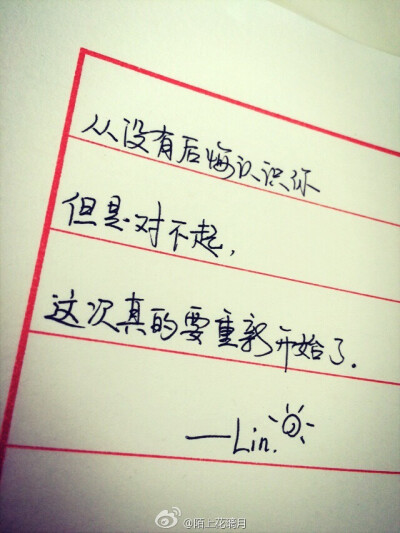 从没有后悔认识你
但是对不起,
这次真的要重新开始了.
—Lin.
@陌上花騁月